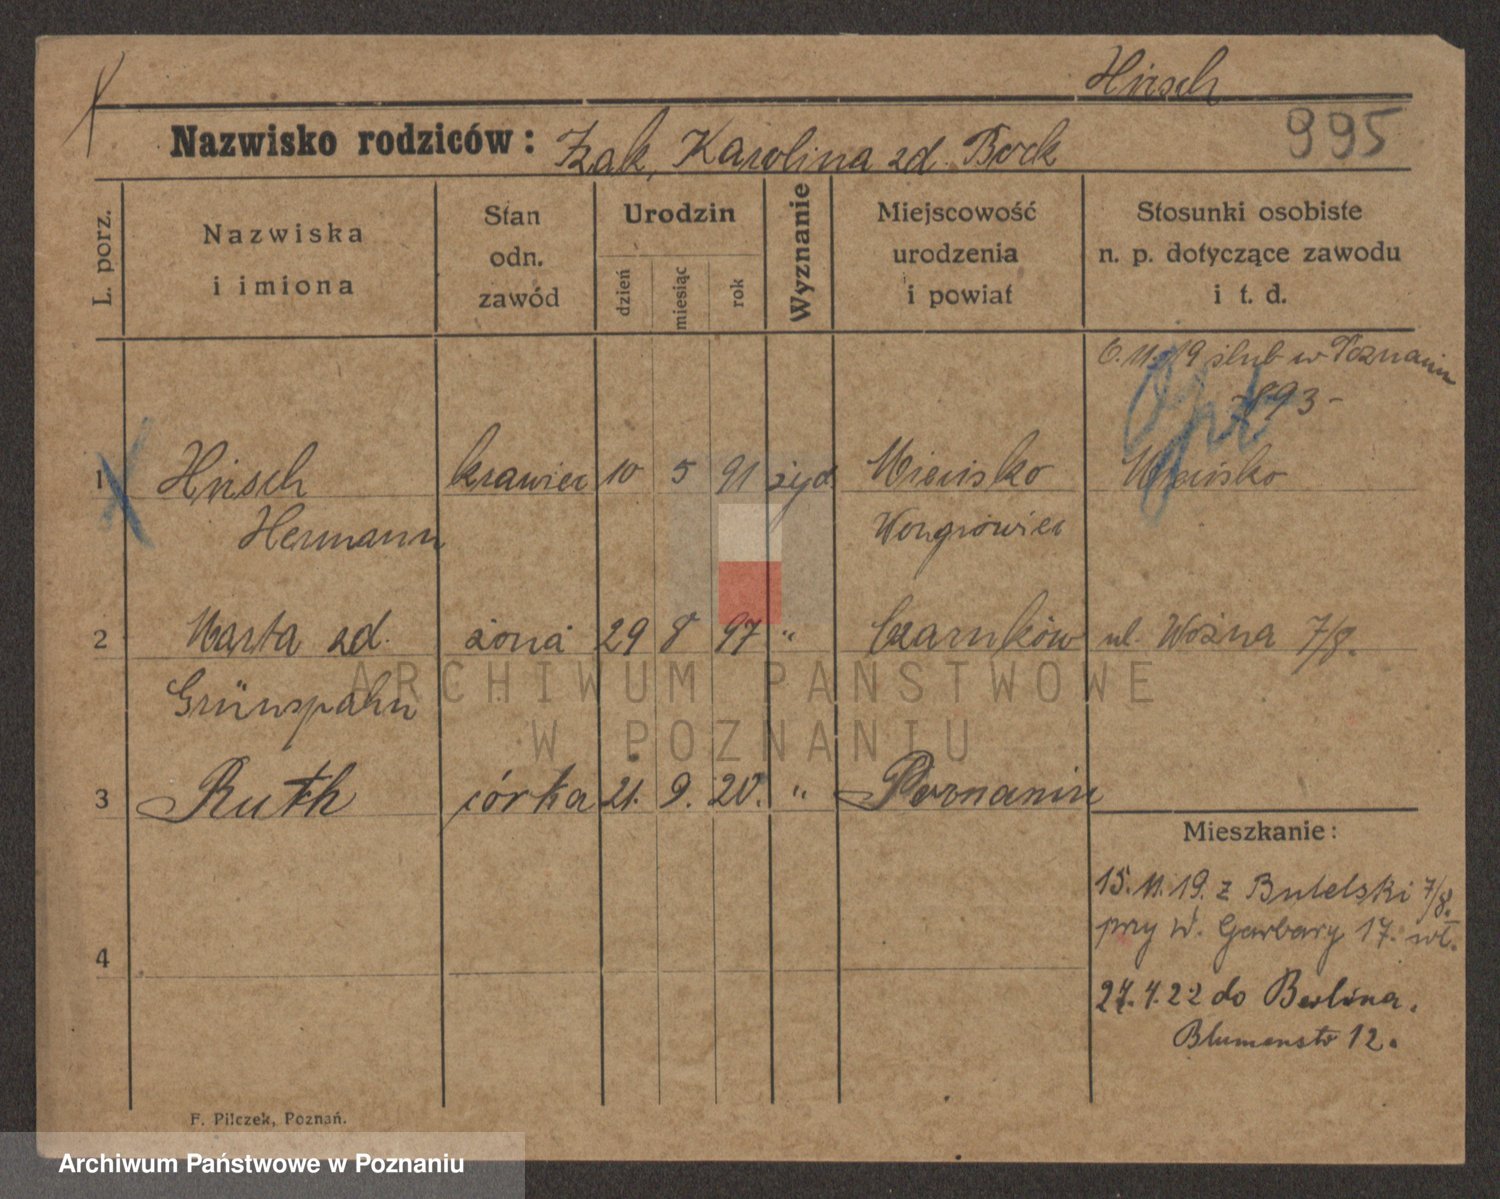 Hirsch
Nazwisko rodziców: Izak, Karolina zd. Bock 995
L. porz.
Nazwiska
i imiona
Stan
odn.
zawód
Urodzin
dzień
miesiąc
rok
Wyznanie
Miejscowość
urodzenia
i powiat
Stosunki osobiste
n. p. dotyczące zawodu
i t. d.
6. 11. 19 ślub w Poznaniu
893-
Opt
1 Hirsch krawiec 10 5 91 żyd. Mieścisko
Hermann Wongrówiec
2 Marta zd. żona 29 8 97 " Czarnków ul. Woźna 7/8.
Grünspahn
3 Ruth córka 21. 9. 20. " Poznaniu
Mieszkanie:
15. 11. 19. z Butelski 7/8.
przy W. Garbary 17. wł.
4
27. 4. 22 do Berlina.
Blumenstr 12.
F. Pilczek, Poznań.
ARCHIWUM PAŃSTWOWE
W POZNANIU
Archiwum Państwowe w Poznaniu